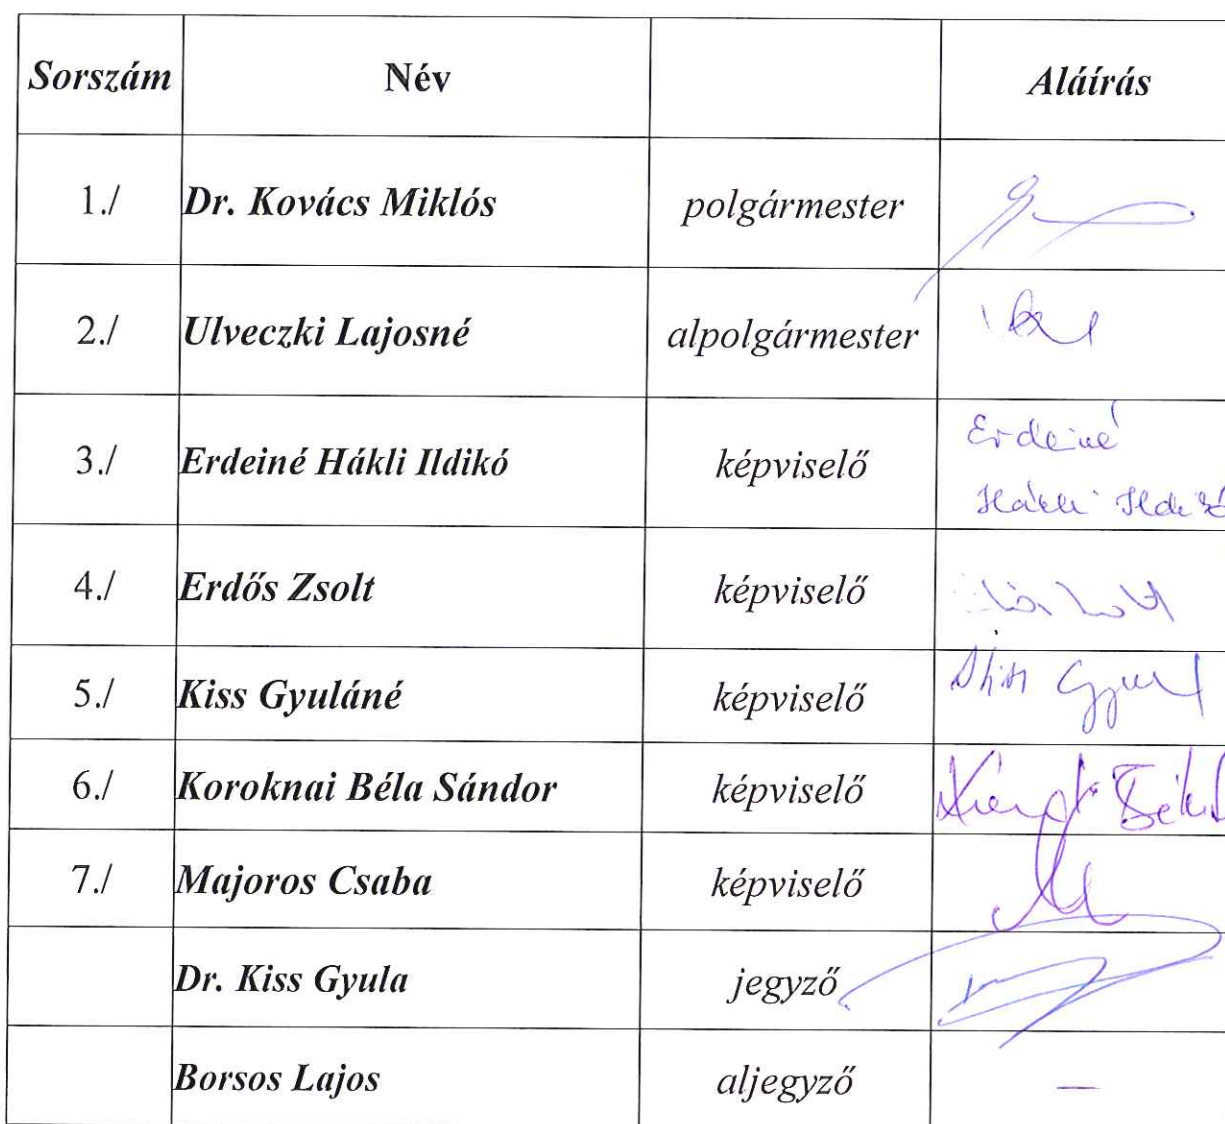 Sorszám Név Aláírás
1./ Dr. Kovács Miklós polgármester
2./ Ulveczki Lajosné alpolgármester
Erdeiné
3./ Erdeiné Hákli Ildikó képviselő
Hákli Ildikó
4./ Erdős Zsolt képviselő
5./ Kiss Gyuláné képviselő Kiss Gyul
6./ Koroknai Béla Sándor képviselő
7./ Majoros Csaba képviselő
Dr. Kiss Gyula jegyző
Borsos Lajos aljegyző —